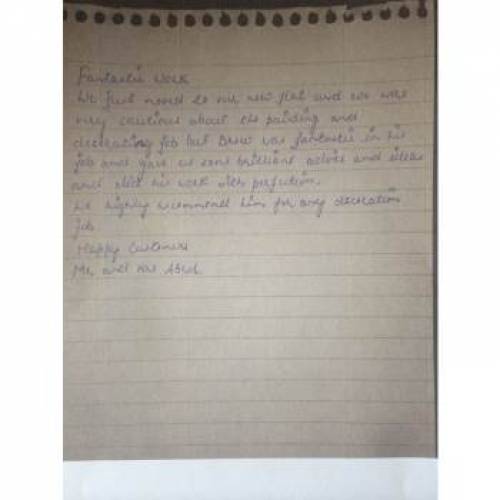 Fantastic work
We just moved to our new flat and we were
very cautious about the painting and
decorating job but Drew was fantastic in his
job and gave us some brilliant advice and ideas
and did his work with perfection.
We highly recommend him for any decoration
job
Happy Customers
Mr and Mrs